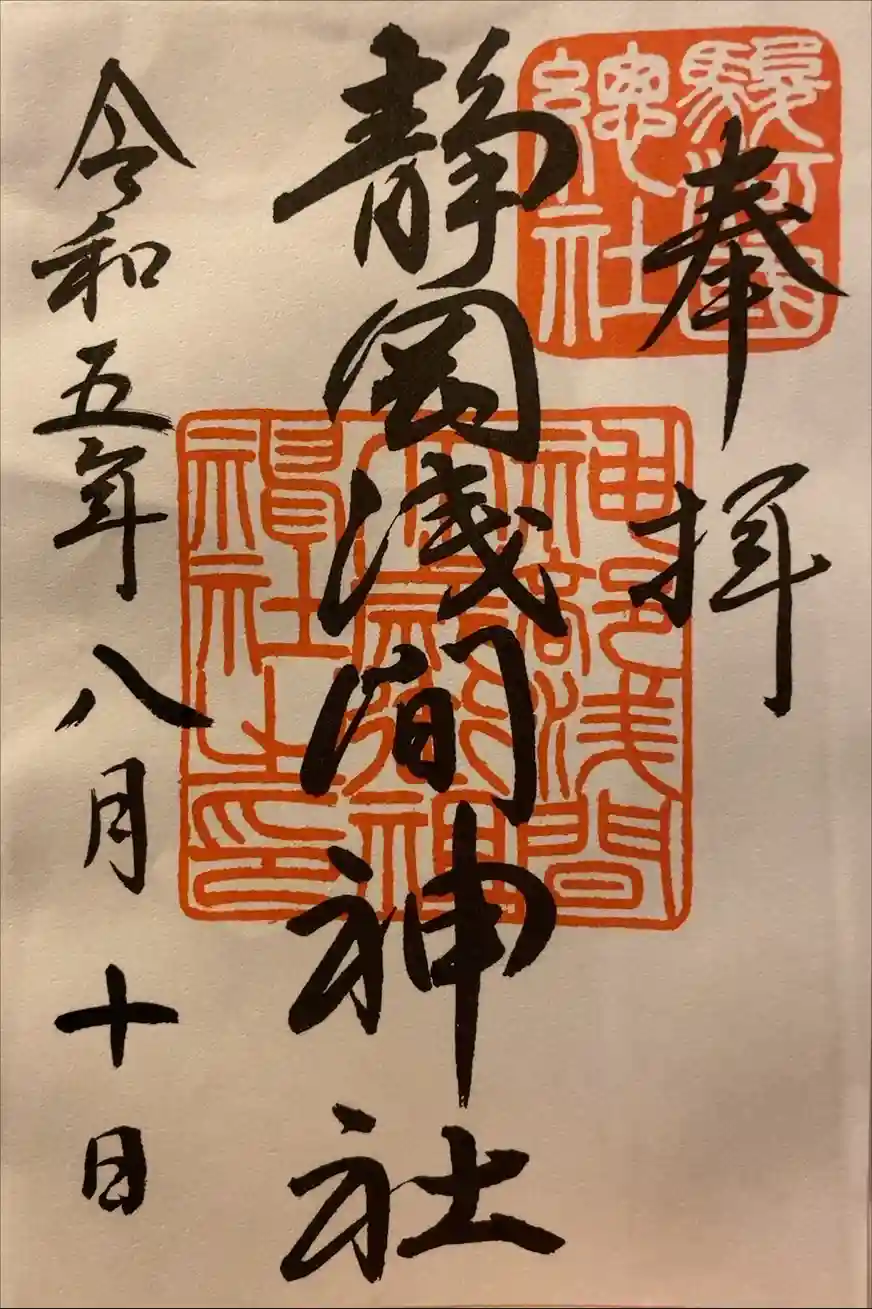 駿河國
總社
奉拝
静岡浅間神社
神部浅間
大歳御祖
神社之印
令和五年八月十日